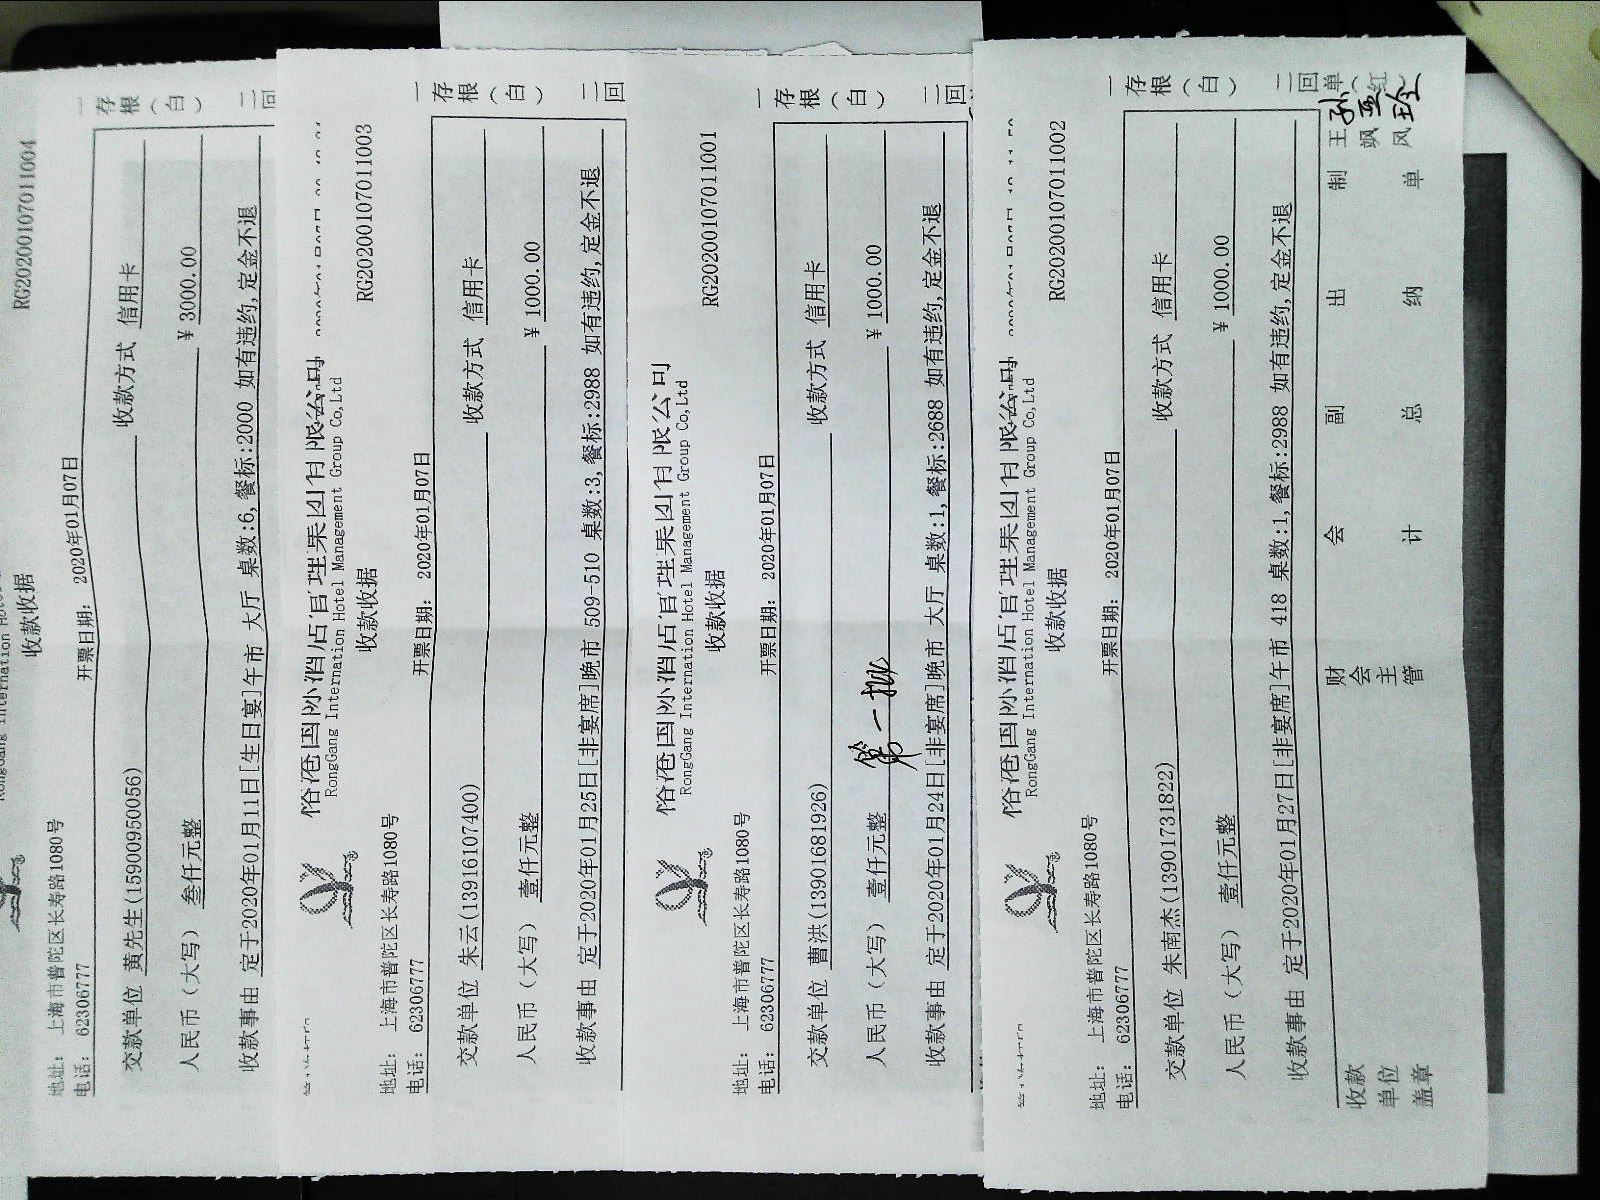 RG20200107011004
收款收据
地址: 上海市普陀区长寿路1080号
电话: 62306777
开票日期: 2020年01月07日
交款单位 黄先生(15900950056) 收款方式 信用卡
人民币(大写) 叁仟元整 ¥ 3000.00
收款事由 定于2020年01月11日[生日宴]午市 大厅 桌数:6,餐标:2000 如有违约,定金不退
一存根(白) 二回
RongGang Internation Hotel Management Group Co,Ltd
RG20200107011003
收款收据
地址: 上海市普陀区长寿路1080号
电话: 62306777
开票日期: 2020年01月07日
交款单位 朱云(13916107400) 收款方式 信用卡
人民币(大写) 壹仟元整 ¥ 1000.00
收款事由 定于2020年01月25日[非宴席]晚市 509-510 桌数:3,餐标:2988 如有违约,定金不退
一存根(白) 二回
RongGang Internation Hotel Management Group Co,Ltd
RG20200107011001
收款收据
地址: 上海市普陀区长寿路1080号
电话: 62306777
开票日期: 2020年01月07日
交款单位 曹洪(13901681926) 收款方式 信用卡
第一批
人民币(大写) 壹仟元整 ¥ 1000.00
收款事由 定于2020年01月24日[非宴席]晚市 大厅 桌数:1,餐标:2688 如有违约,定金不退
一存根(白) 二回
RongGang Internation Hotel Management Group Co,Ltd
RG20200107011002
收款收据
地址: 上海市普陀区长寿路1080号
电话: 62306777
开票日期: 2020年01月07日
交款单位 朱南杰(13901731822) 收款方式 信用卡
人民币(大写) 壹仟元整 ¥ 1000.00
收款事由 定于2020年01月27日[非宴席]午市 418 桌数:1,餐标:2988 如有违约,定金不退
一存根(白) 二回单(红)
收款单位盖章 财会主管 会计 副总 出纳 制单 王飒凤